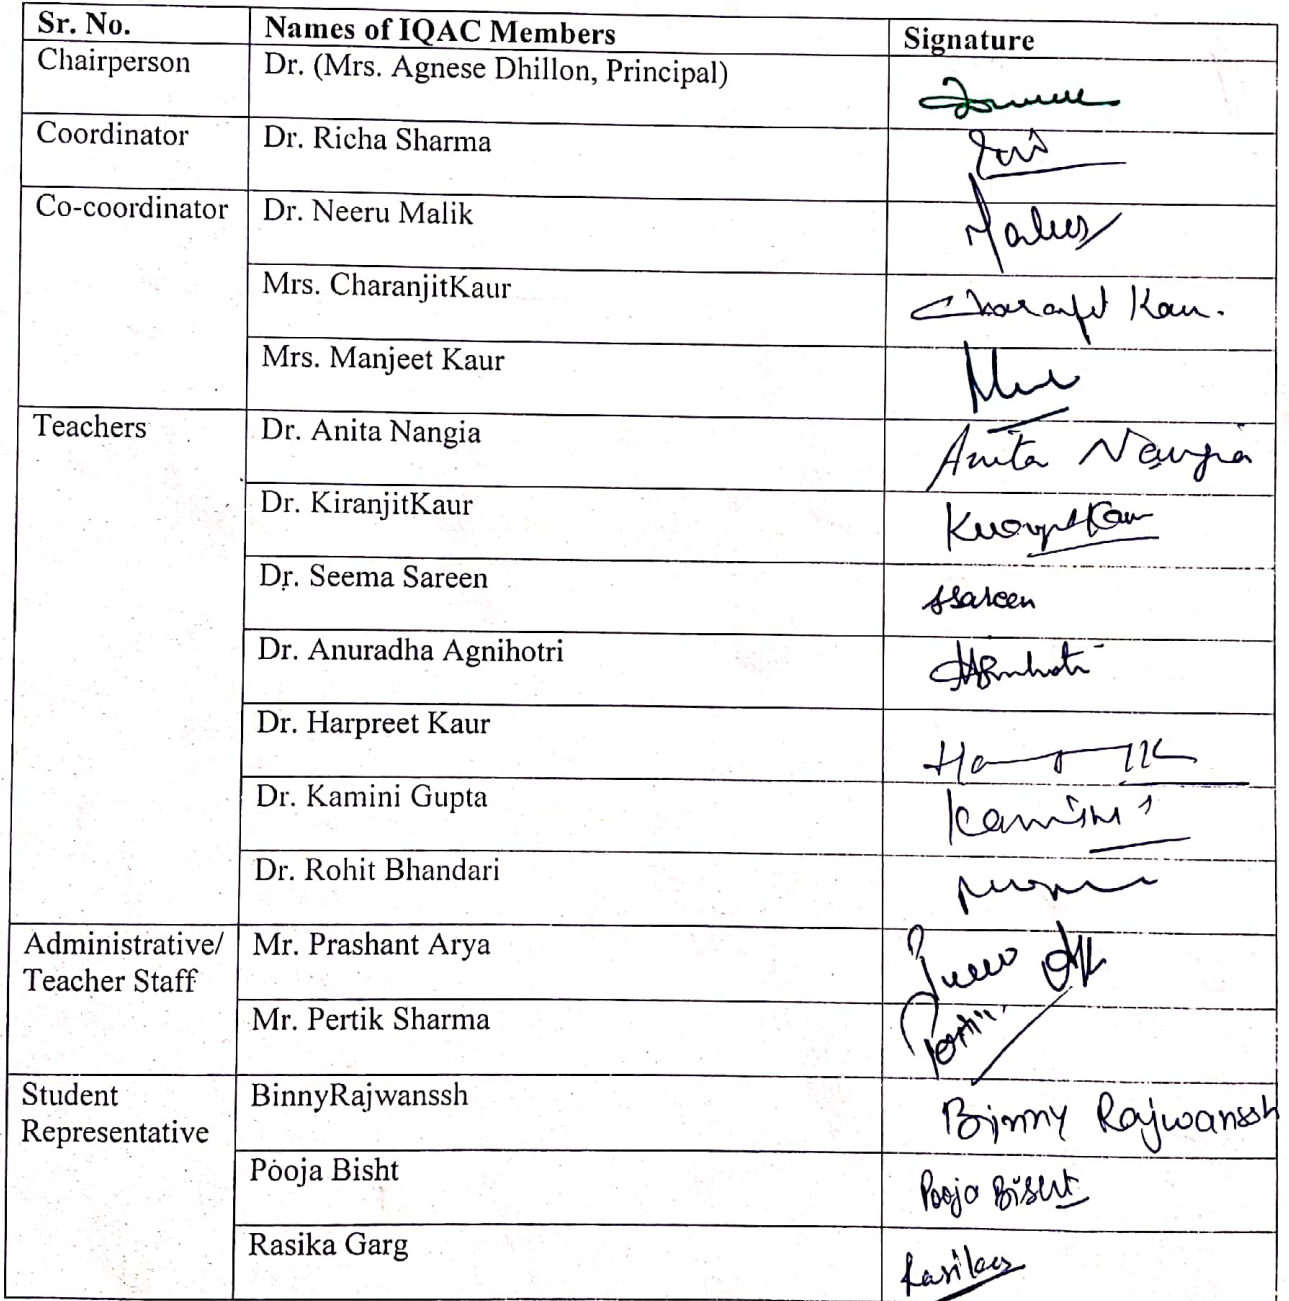 Sr. No. Names of IQAC Members Signature
Chairperson Dr. (Mrs. Agnese Dhillon, Principal)
Coordinator Dr. Richa Sharma
Co-coordinator Dr. Neeru Malik
Mrs. CharanjitKaur Charanjit Kaur.
Mrs. Manjeet Kaur
Teachers Dr. Anita Nangia Anita Nangia
Dr. KiranjitKaur
Dr. Seema Sareen SSareen
Dr. Anuradha Agnihotri
Dr. Harpreet Kaur
Dr. Kamini Gupta Kamini
Dr. Rohit Bhandari
Administrative/ Mr. Prashant Arya
Teacher Staff
Mr. Pertik Sharma
Student BinnyRajwanssh Binny Rajwanssh
Representative
Pooja Bisht Pooja Bisht
Rasika Garg